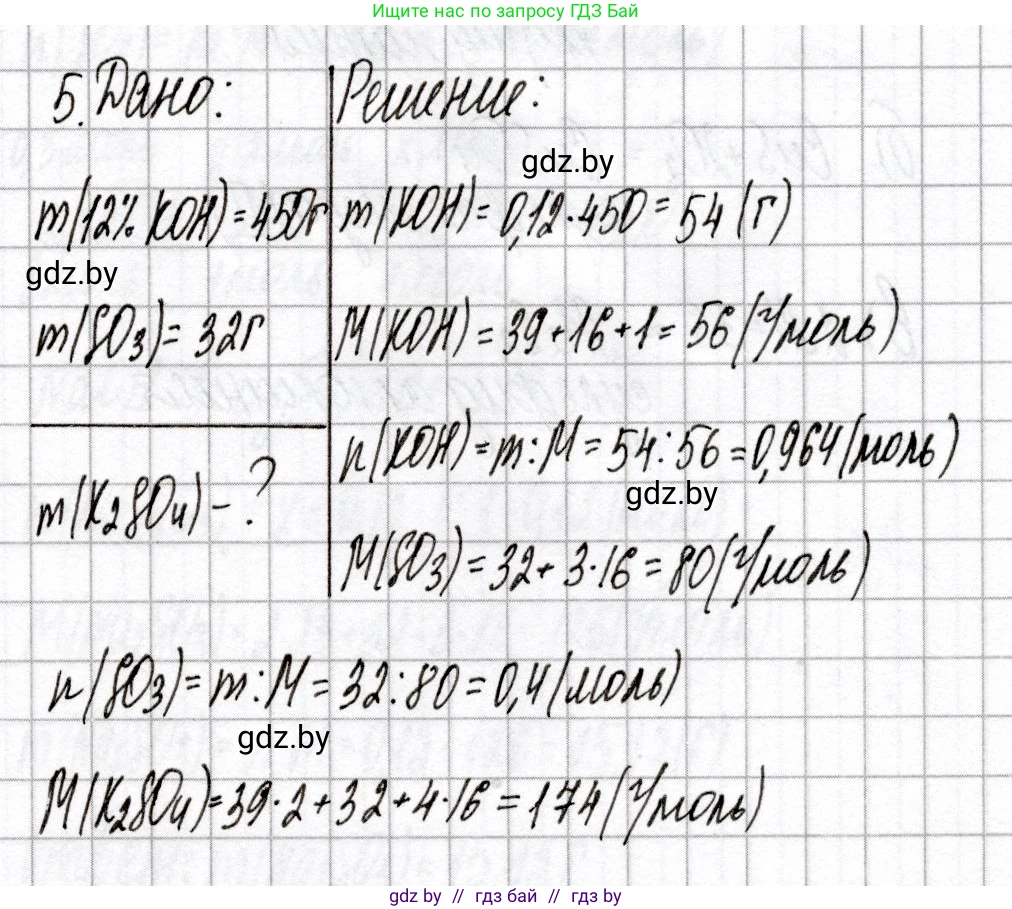 Ищите нас по запросу ГДЗ Бай
5. Дано:
Решение:
gdz.by
m(12% KOH) = 450г
m(KOH) = 0,12·450 = 54 (г)
gdz.by
m(SO₃) = 32г
M(KOH) = 39+16+1 = 56 (г/моль)
n(KOH) = m:M = 54:56 = 0,964 (моль)
gdz.by
m(K₂SO₄) - ?
M(SO₃) = 32+3·16 = 80 (г/моль)
n(SO₃) = m:M = 32:80 = 0,4 (моль)
gdz.by
M(K₂SO₄) = 39·2+32+4·16 = 174 (г/моль)
gdz by // гдз бай // gdz by